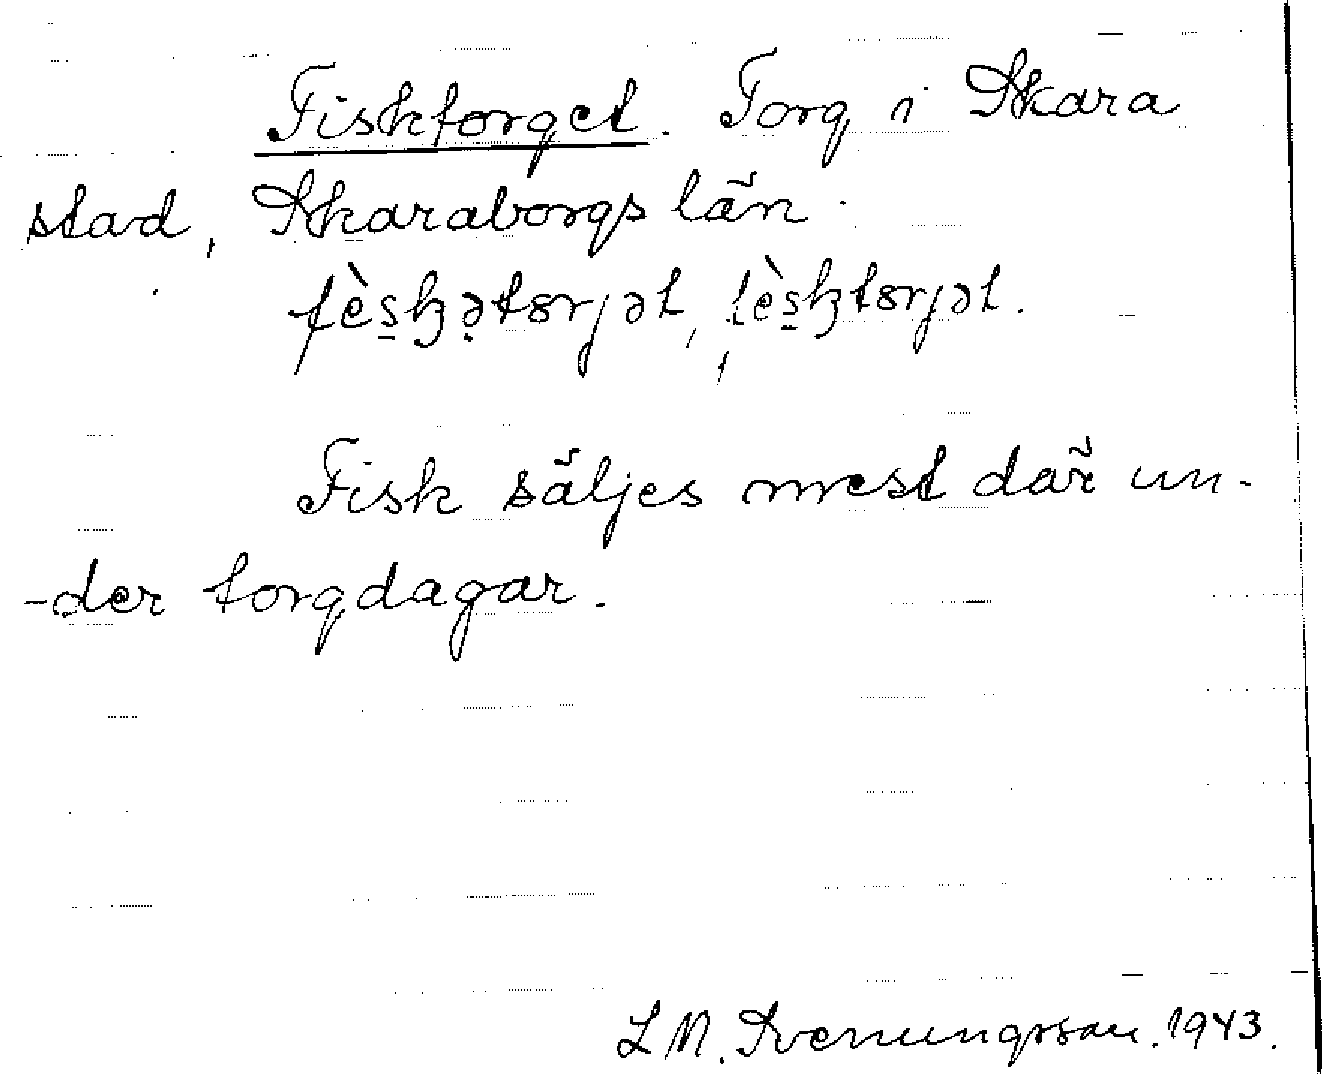 Fisktorget. Torg i Skara
stad, Skaraborgs län.
fèskətørjət, fèsktørjət.
Fisk säljes mest där un-
-der torgdagar.
L M. Svenungsson. 1943.